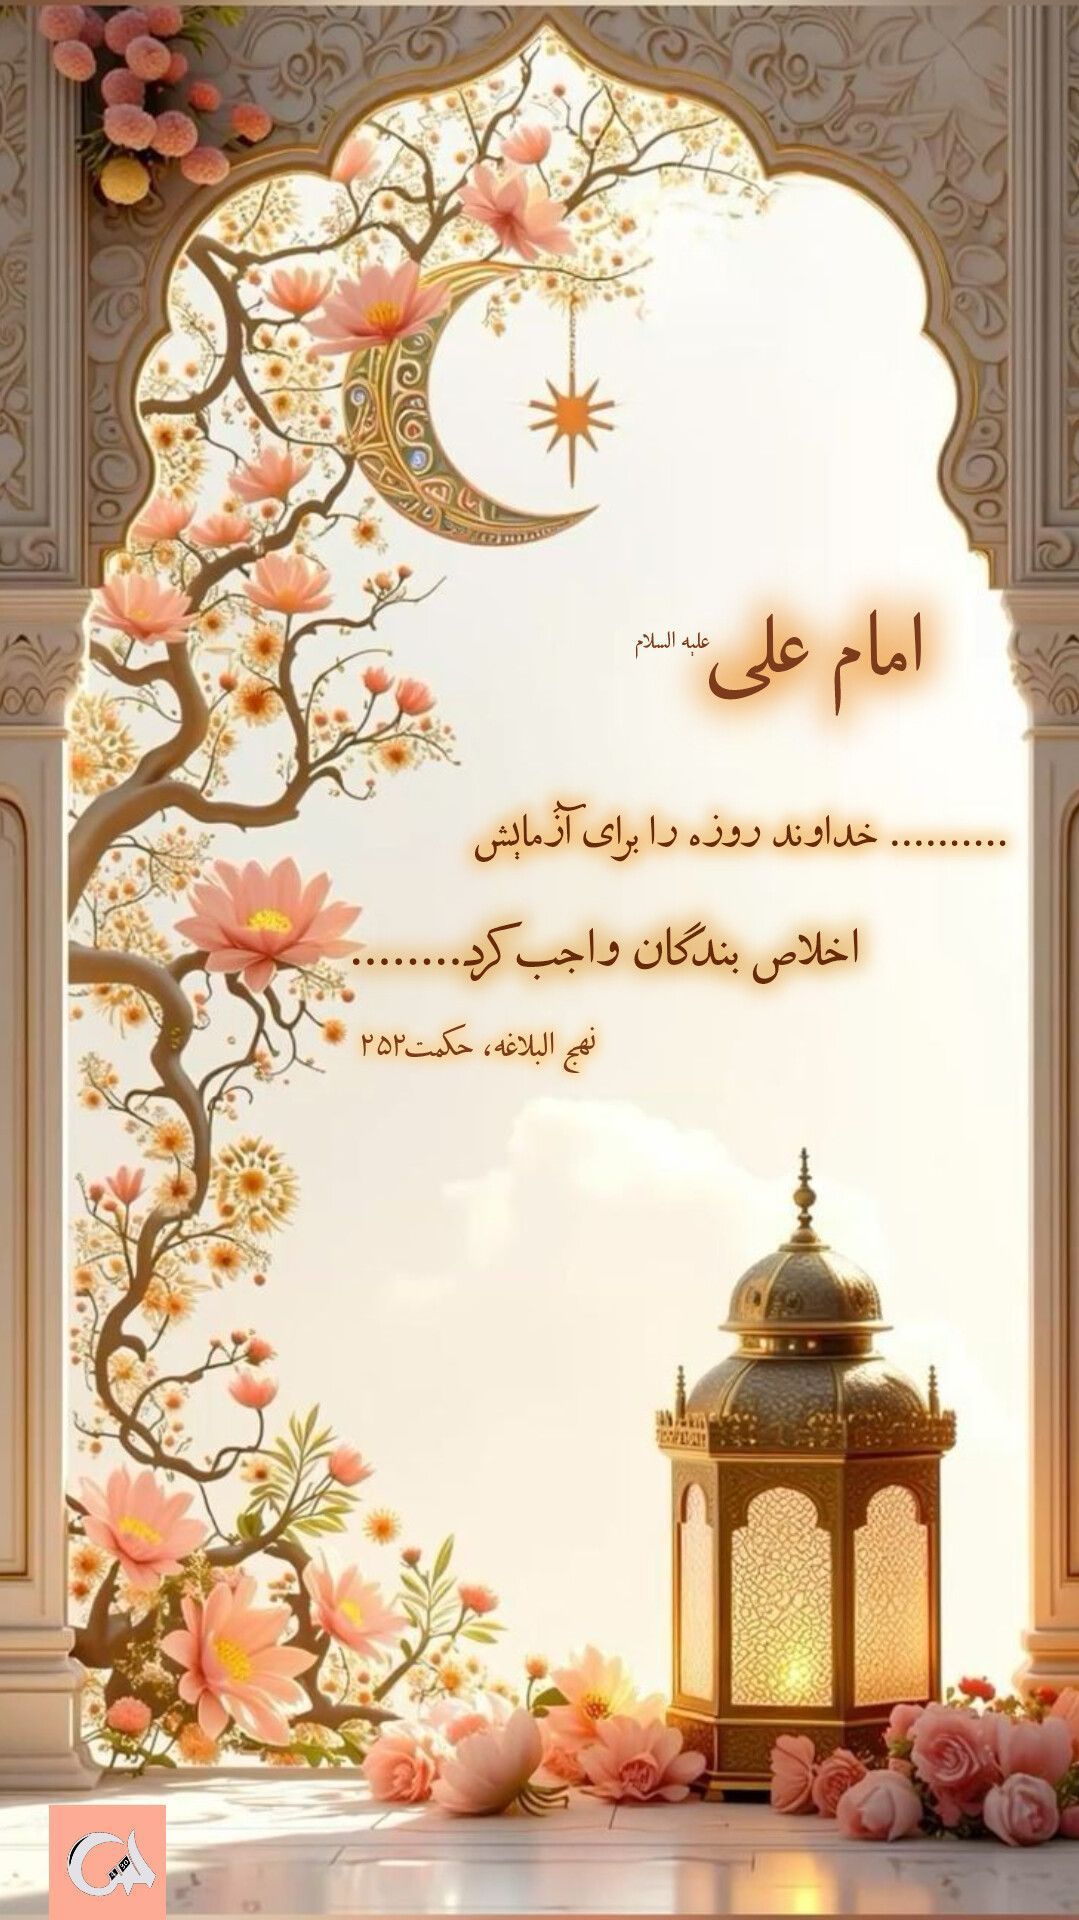 امام علی علیه السلام
.......... خداوند روزه را برای آزمایش
اخلاص بندگان واجب کرد........
نهج البلاغه، حکمت۲۵۲